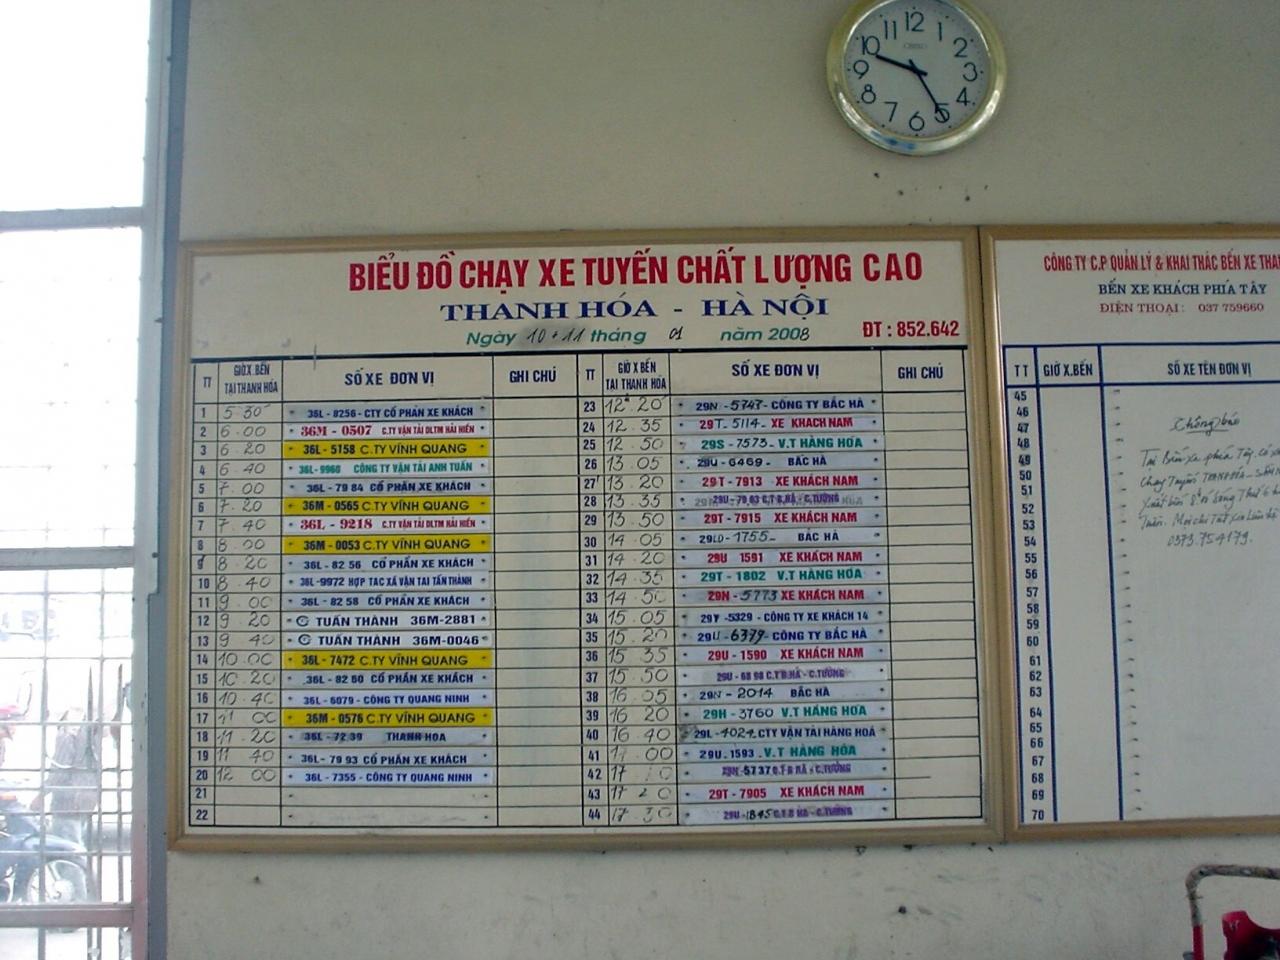 12
11
10
9
8
7
6
5
4
3
2
BIỂU ĐỒ CHẠY XE TUYẾN CHẤT LƯỢNG CAO
THANH HÓA - HÀ NỘI
Ngày 10 + 11 tháng 01 năm 2008
ĐT : 852.642
TT GIỜ X.BẾN TẠI THANH HÓA SỐ XE ĐƠN VỊ GHI CHÚ
1 5 30 36L - 8256 - CTY CỔ PHẦN XE KHÁCH
2 6 00 36M - 0507 C.TY VẬN TẢI DLTM HẢI HIỀN
3 6 20 36L - 5158 C.TY VĨNH QUANG
4 6 40 36L-9960 CÔNG TY VẬN TẢI ANH TUẤN
5 7 00 36L - 79 84 CỔ PHẦN XE KHÁCH
6 7 20 36M - 0565 C.TY VĨNH QUANG
7 7 40 36L - 9218 C.TY VẬN TẢI DLTM HẢI HIỀN
8 8 00 36M - 0053 C.TY VĨNH QUANG
9 8 20 36L - 82 56 CỔ PHẦN XE KHÁCH
10 8 40 36L-9972 HỢP TAC XÃ VẬN TAI TẤN THÀNH
11 9 00 36L - 82 58 CỔ PHẦN XE KHÁCH
12 9 20 TUẤN THÀNH 36M-2881
13 9 40 TUẤN THÀNH 36M-0046
14 10 00 36L- 7472 C.TY VĨNH QUANG
15 10 20 36L - 82 60 CỔ PHẦN XE KHÁCH
16 10 40 36L - 6079 - CÔNG TY QUANG NINH
17 11 00 36M - 0576 C.TY VĨNH QUANG
18 11 20 36L - 72 39 THANH HOA
19 11 40 36L - 79 93 CỔ PHẦN XE KHÁCH
20 12 00 36L - 7355 - CÔNG TY QUANG NINH
21
22
TT GIỜ X BẾN TẠI THANH HÓA SỐ XE ĐƠN VỊ GHI CHÚ
23 12 20 29N - 5747 - CÔNG TY BẮC HÀ
24 12 35 29T - 5114 - XE KHACH NAM
25 12 50 29S - 7573 - V.T HÀNG HÓA
26 13 05 29U - 6469 - BẮC HÀ
27 13 20 29T - 7913 XE KHÁCH NAM
28 13 35
29 13 50 29T - 7915 XE KHÁCH NAM
30 14 05 29LD - 1755 - BẮC HÀ
31 14 20 29U 1591 XE KHÁCH NAM
32 14 35 29T - 1802 V.T HÀNG HÓA
33 14 50 29N - 5773 XE KHÁCH NAM
34 15 05 29Y - 5329 - CÔNG TY XE KHÁCH 14
35 15 20 29U - 6379 - CÔNG TY BẮC HÀ
36 15 35 29U - 1590 - XE KHÁCH NAM
37 15 50 29U - 68 98 C.T B.HÀ - C.TƯỜNG
38 16 05 29N - 2014 BẮC HÀ
39 16 20 29H - 3760 V.T HÀNG HÓA
40 16 40 29L - 4024 - CTY VẬN TẢI HÀNG HOÁ
41 17 00 29U - 1593 . V.T HÀNG HÓA
42 17 10
43 17 20 29T - 7905 XE KHÁCH NAM
44 17 30 29U - 1845 C.T B HÀ - C.TƯỜNG
CÔNG TY C.P QUẢN LÝ & KHAI THÁC BẾN XE
BẾN XE KHÁCH PHÍA TÂY
ĐIỆN THOẠI : 037 759660
TT GIỜ X.BẾN SỐ XE TÊN ĐƠN VỊ
45
46
47
48
49
50
51
52
53
54
55
56
57
58
59
60
61
62
63
64
65
66
67
68
69
70
Thông báo
Tại Bến xe phía Tây có xe
Chạy Tuyến THANH HÓA
Tuần. Mọi chi tiết xin liên hệ
0373.754179.